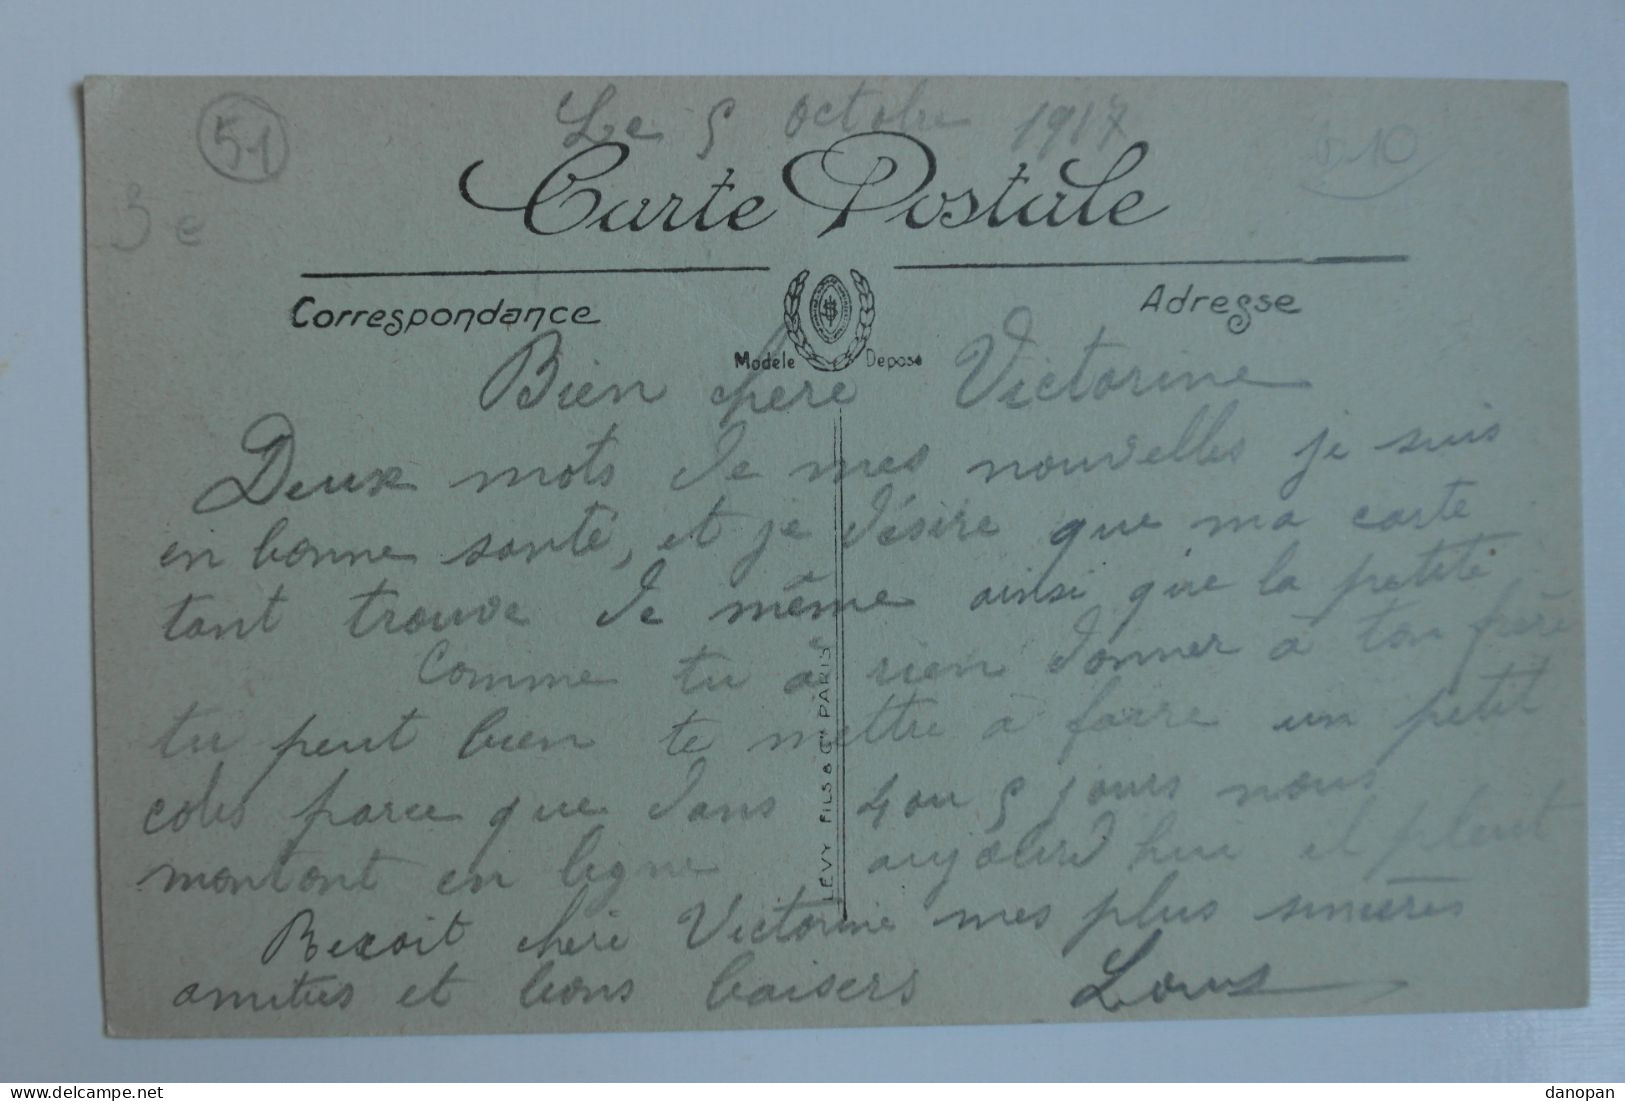 Le 5 octobre 1917
51
5.10
3 e
Carte Postale
Correspondance
Adresse
Modèle Déposé
Bien chere Victorine
Deux mots de mes nouvelles je suis
en bonne santé, et je désire que ma carte
tant trouve de même ainsi que la petite
Comme tu à rien donner à ton frère
tu peut bien te mettre à faire un petit
colis parce que dans 4 ou 5 jours nous
montont en ligne aujourd'hui il pleut
Rexoit cheri Victorine mes plus sincères
amitiés et bons baisers Louis
LÉVY FILS & Cie PARIS
delcampe.net
danopan